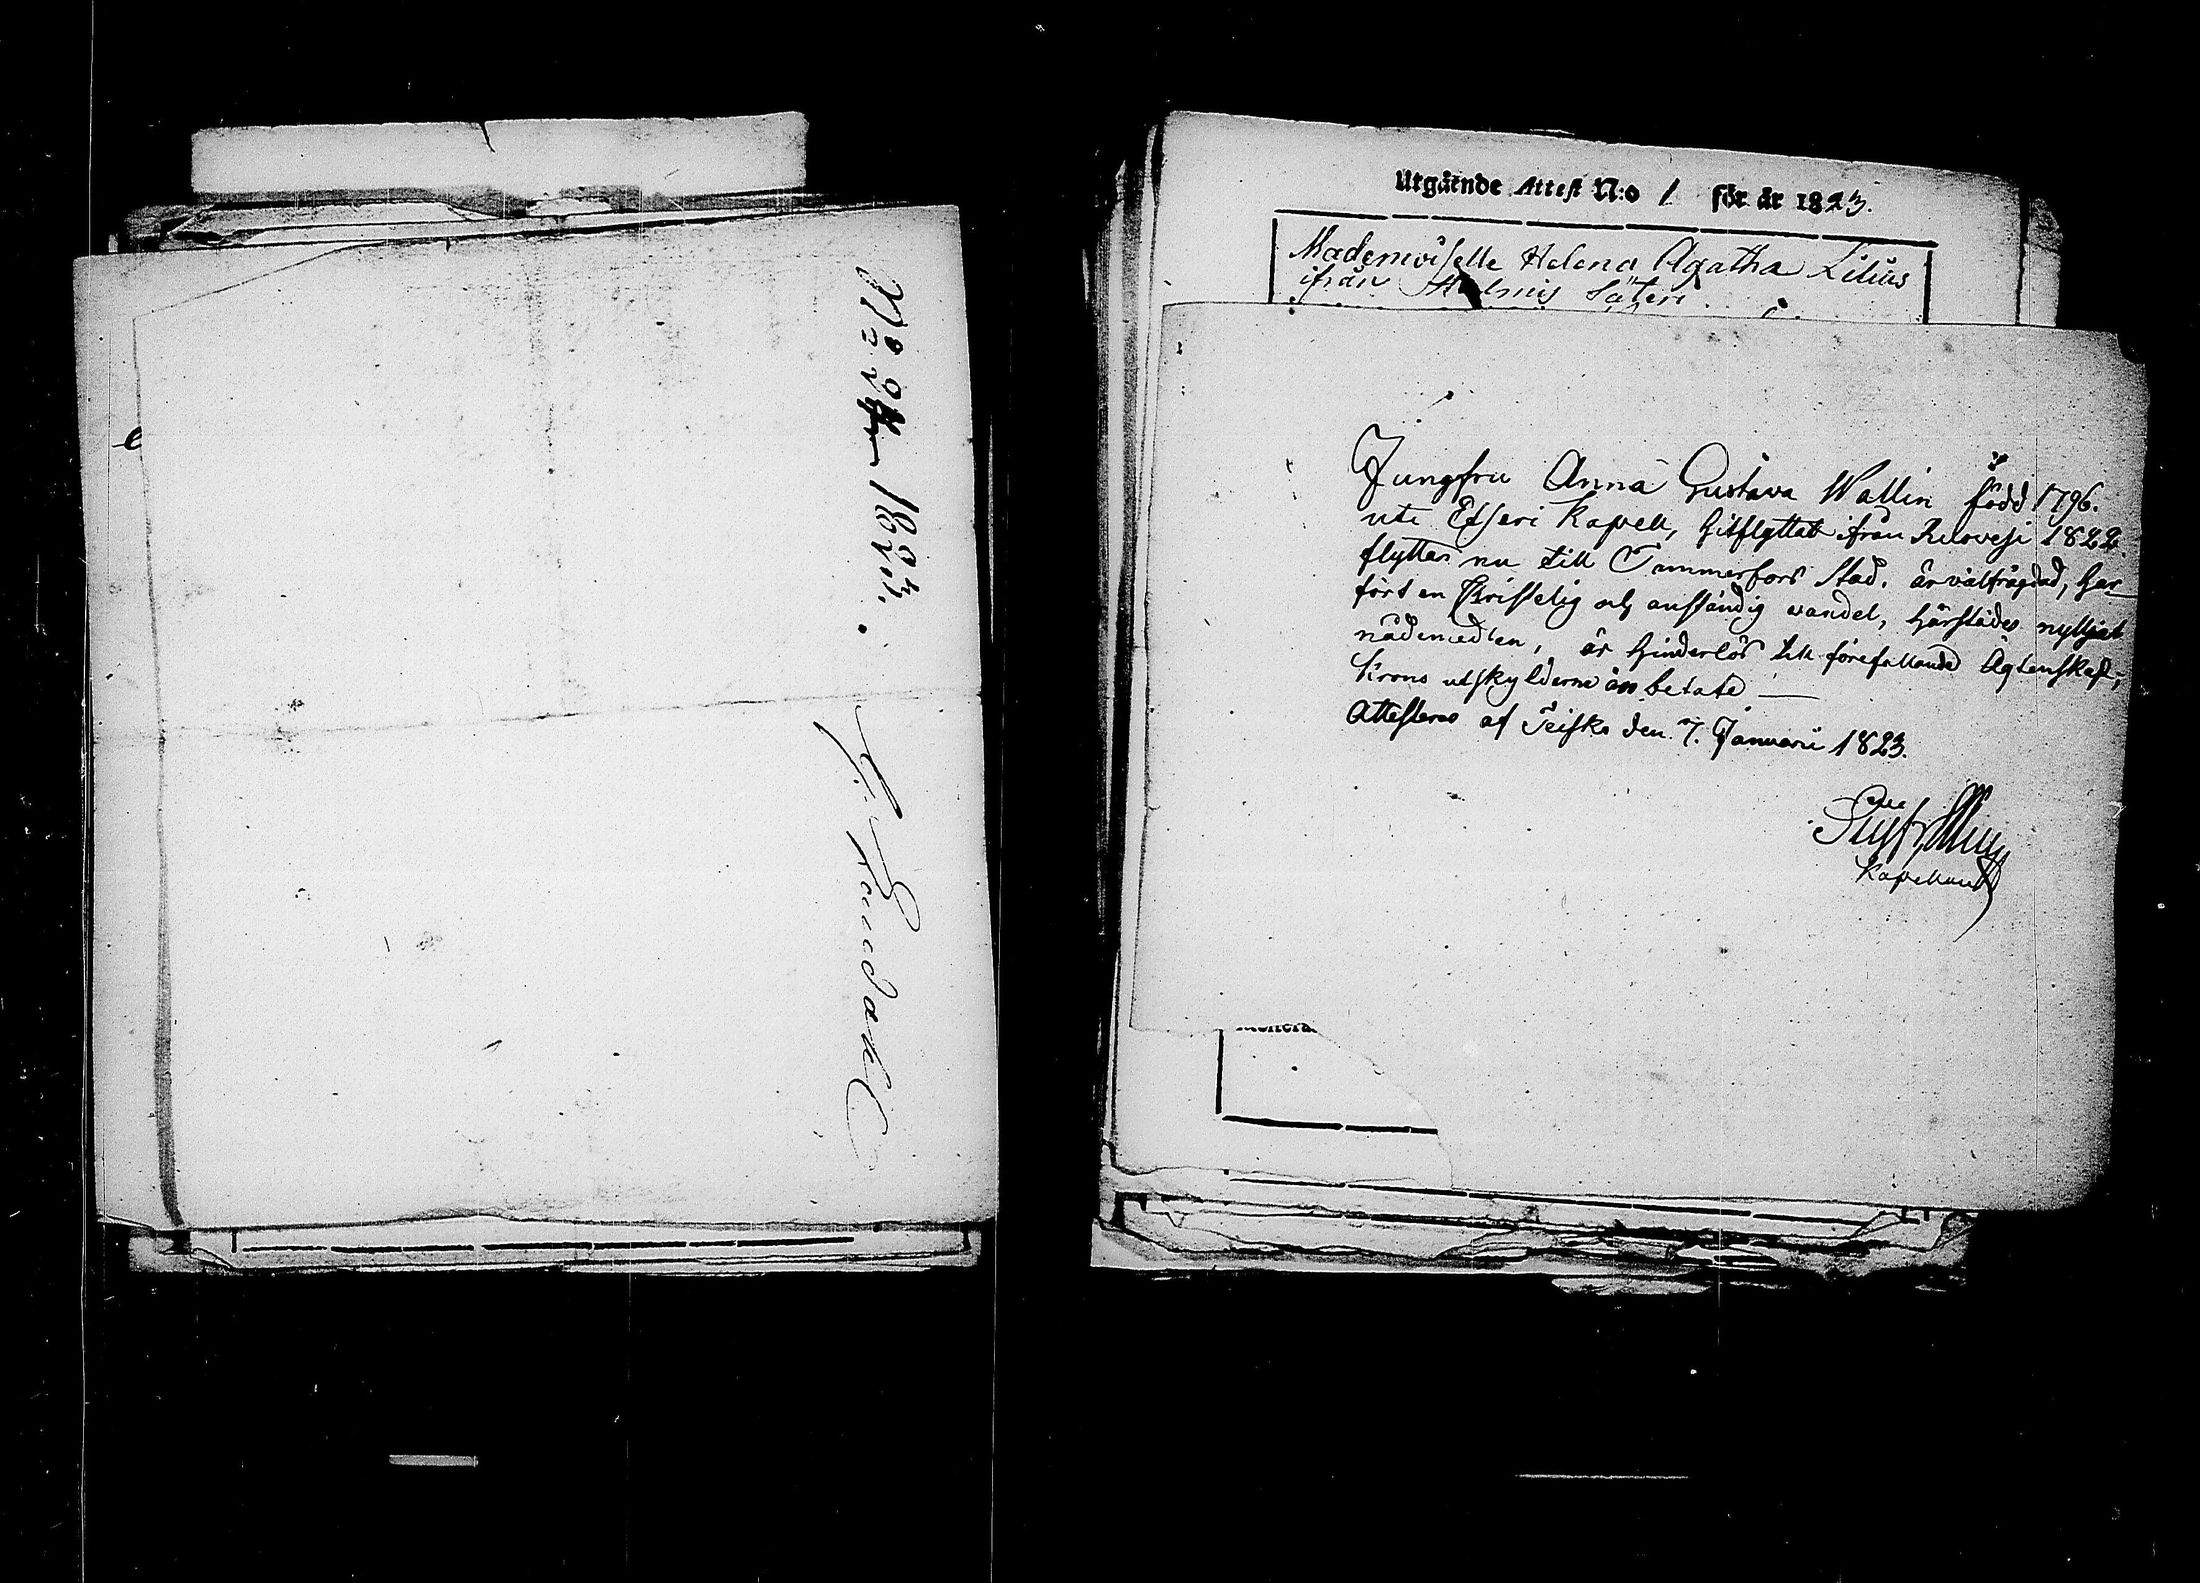 No 2 för 1823.
Utgående Attest N:o 1 för år 1823.
Mademoiselle Helena Agatha Lilius
ifrån Säteri
Jungfru Anna Gustava Wallin född 1796.
uti Etseri Kapell, hitflyttat ifrån Rulovesi 1822
flyttar nu till Tammerfors Stad. är välfrägdad, har
fört en Kristelig och anständig vandel, härstädes nyttjat
nådemedlen, är hinderlös till förefallande Ägtenskap;
Krono utskylderne äro betalte —
Attesteras af Teisko den 7. Januarii 1823.
Kapellan